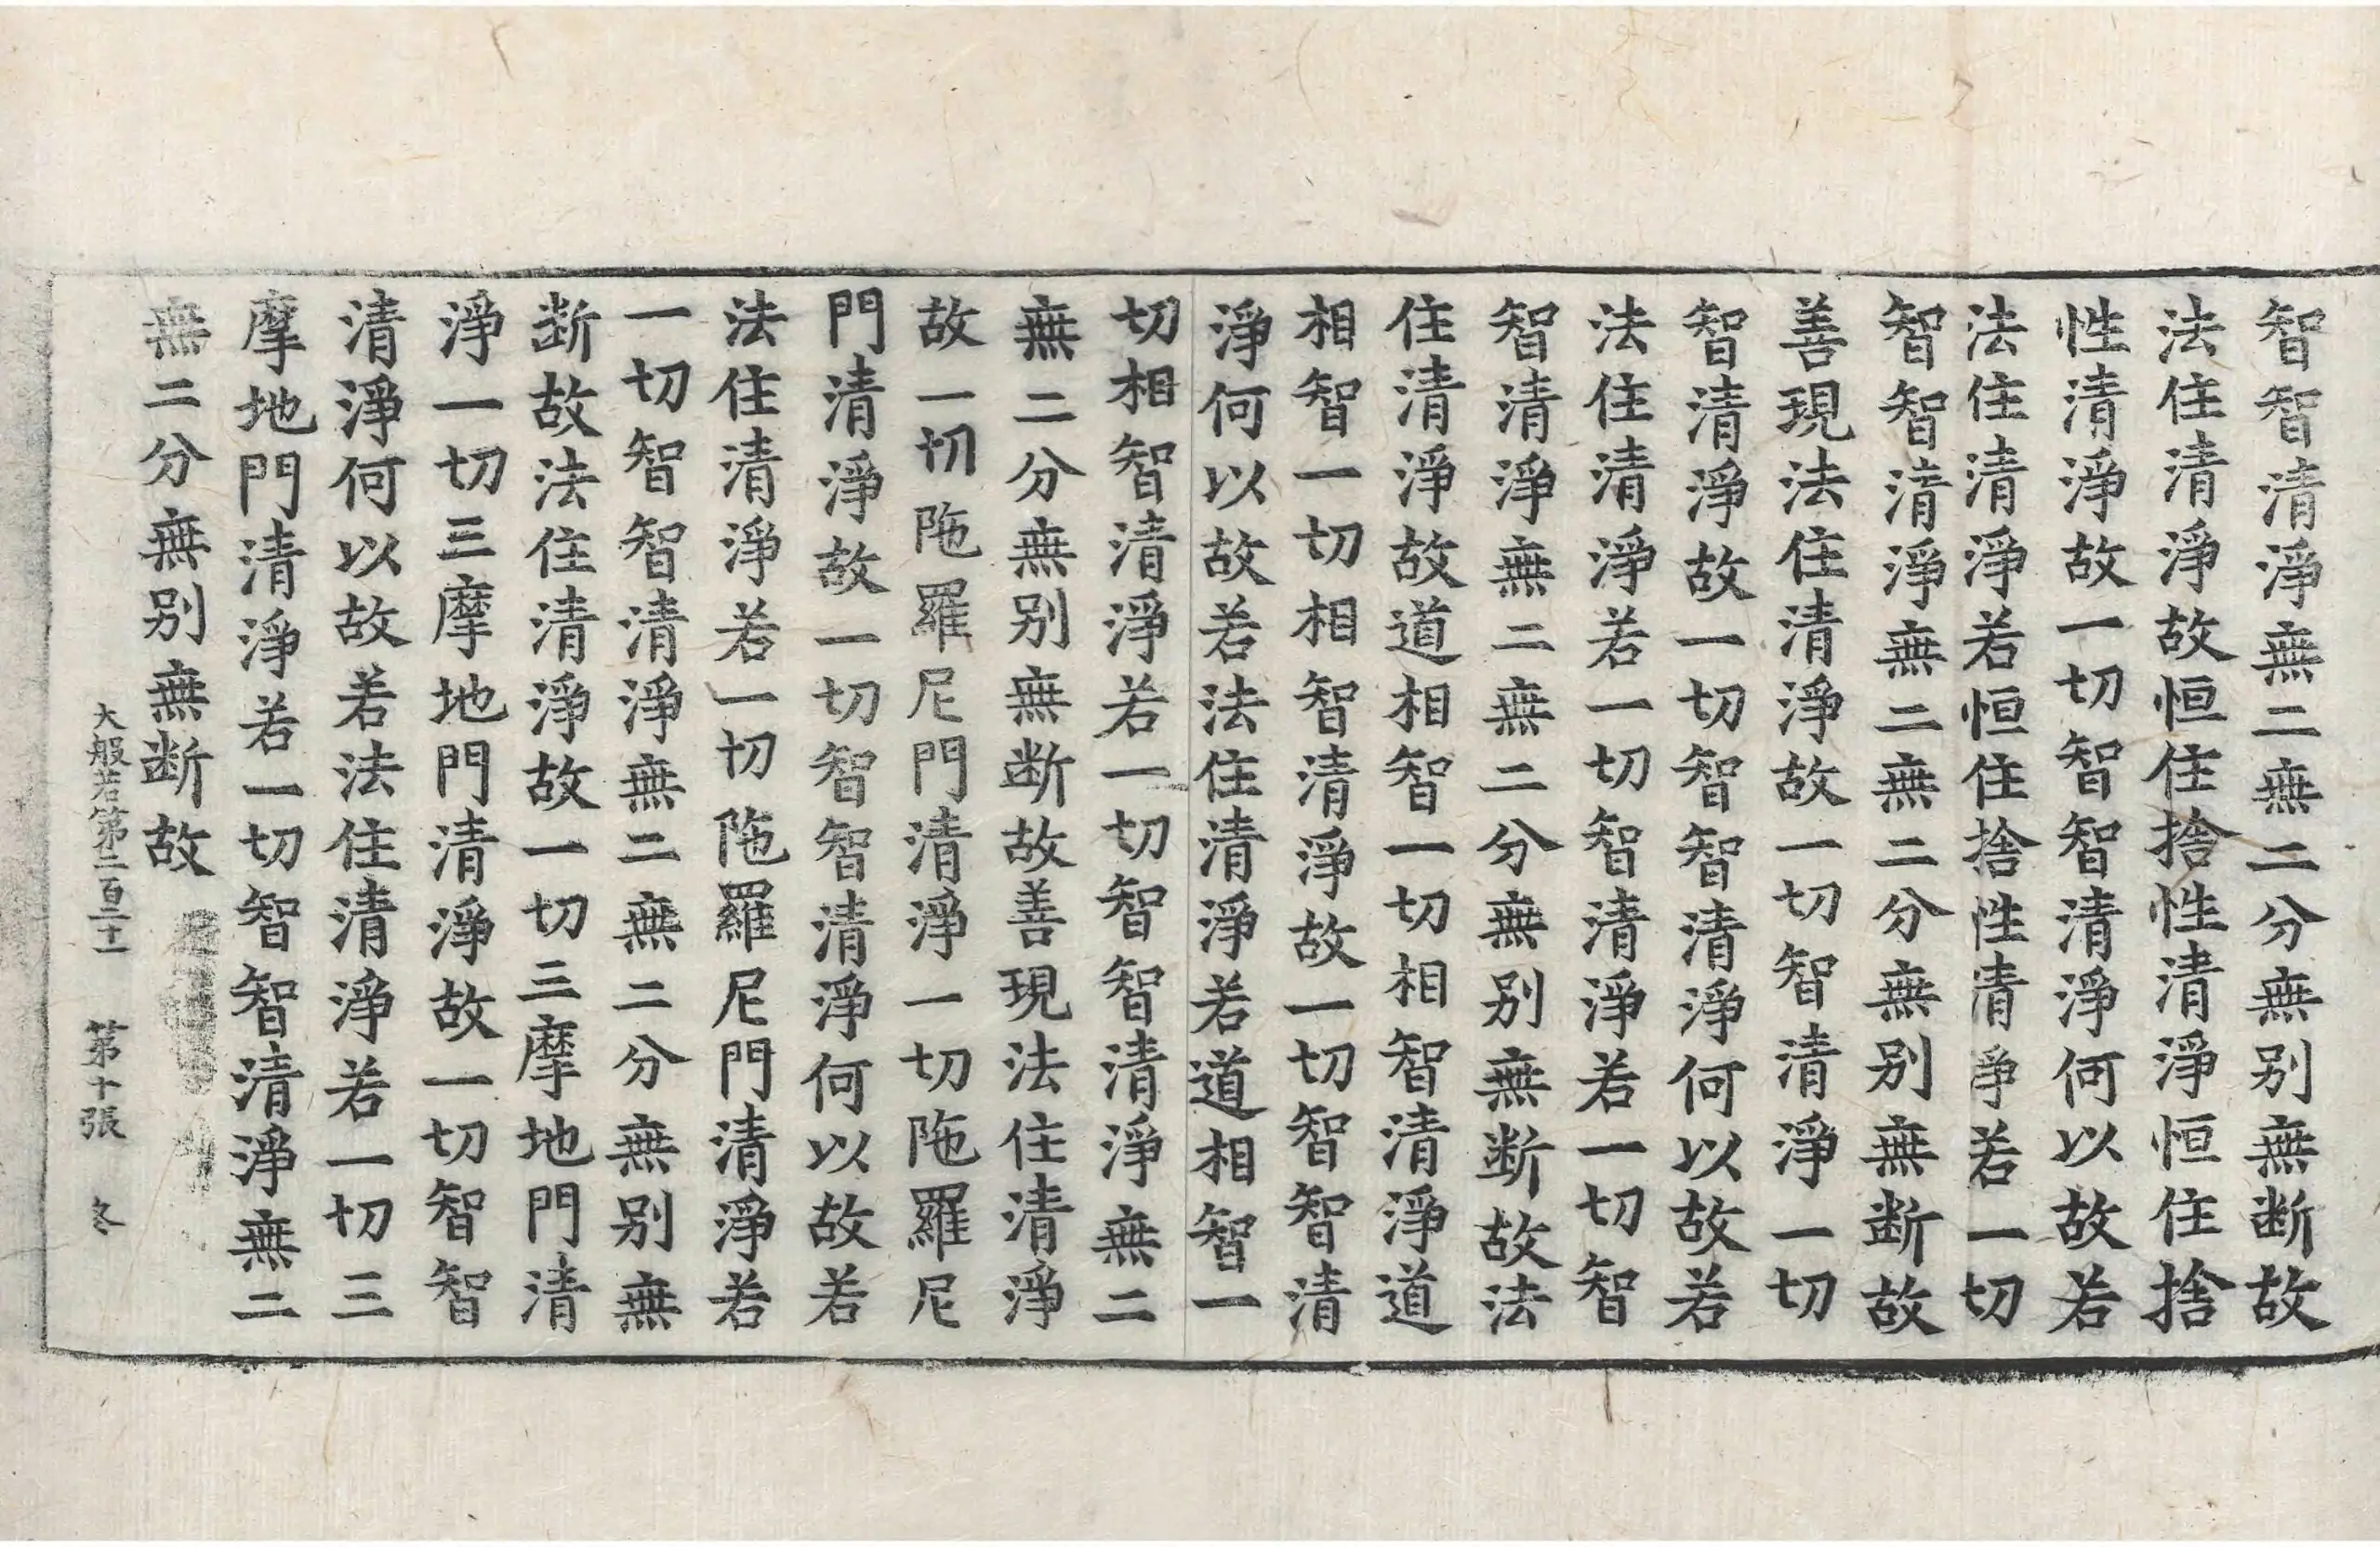 智智清淨無二無二分無別無断故
法住清淨故恒住捨性清淨恒住捨
性清淨故一切智智清淨何以故若
法住清淨若恒住捨性清淨若一切
智智清淨無二無二分無別無断故
善現法住清淨故一切智清淨一切
智清淨故一切智智清淨何以故若
法住清淨若一切智清淨若一切智
智清淨無二無二分無別無断故法
住清淨故道相智一切相智清淨道
相智一切相智清淨故一切智智清
淨何以故若法住清淨若道相智一
切相智清淨若一切智智清淨無二
無二分無別無断故善現法住清淨
故一切陁羅尼門清淨一切陁羅尼
門清淨故一切智智清淨何以故若
法住清淨若一切陁羅尼門清淨若
一切智智清淨無二無二分無別無
断故法住清淨故一切三摩地門清
淨一切三摩地門清淨故一切智智
清淨何以故若法住清淨若一切三
摩地門清淨若一切智智清淨無二
無二分無別無断故
大般若第二百三十一 第十張 冬